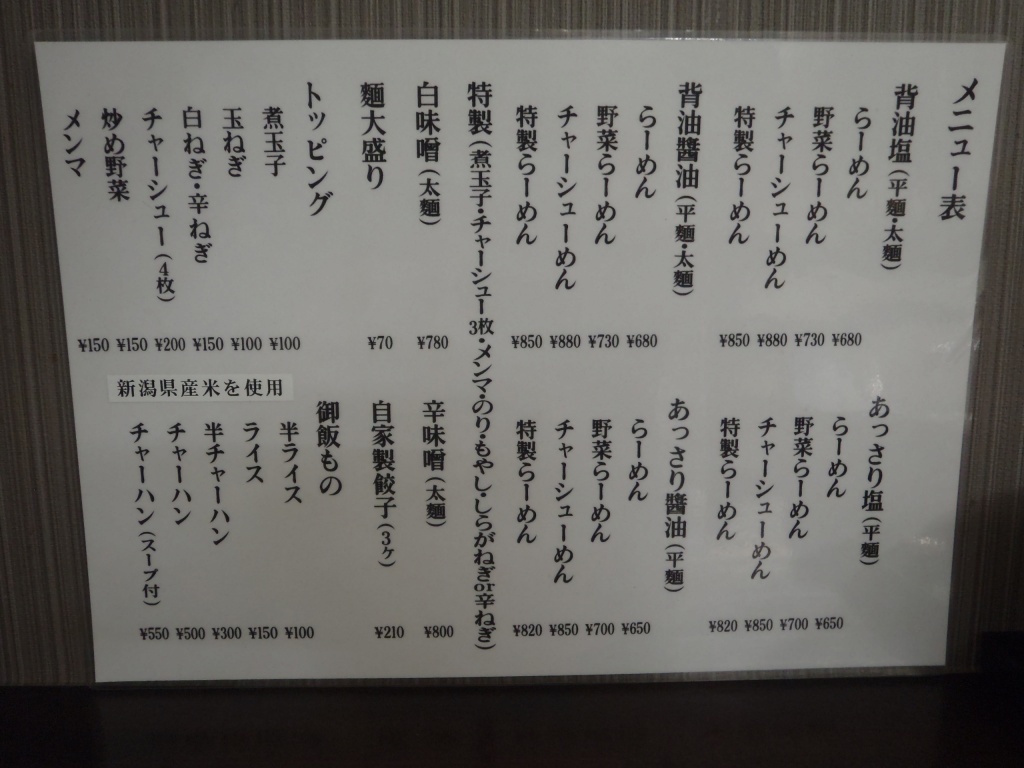 メニュー表
背油塩（平麺・太麺）
らーめん ¥680
野菜らーめん ¥730
チャーシューめん ¥880
特製らーめん ¥850
あっさり塩（平麺）
らーめん ¥650
野菜らーめん ¥700
チャーシューめん ¥850
特製らーめん ¥820
背油醬油（平麺・太麺）
らーめん ¥680
野菜らーめん ¥730
チャーシューめん ¥880
特製らーめん ¥850
あっさり醬油（平麺）
らーめん ¥650
野菜らーめん ¥700
チャーシューめん ¥850
特製らーめん ¥820
特製（煮玉子・チャーシュー3枚・メンマ・のり・もやし・しらがねぎor辛ねぎ）
白味噌（太麺） ¥780
辛味噌（太麺） ¥800
麺大盛り ¥70
自家製餃子（3ヶ） ¥210
トッピング
煮玉子 ¥100
玉ねぎ ¥100
白ねぎ・辛ねぎ ¥150
チャーシュー（4枚） ¥200
炒め野菜 ¥150
メンマ ¥150
御飯もの
新潟県産米を使用
半ライス ¥100
ライス ¥150
半チャーハン ¥300
チャーハン ¥500
チャーハン（スープ付） ¥550